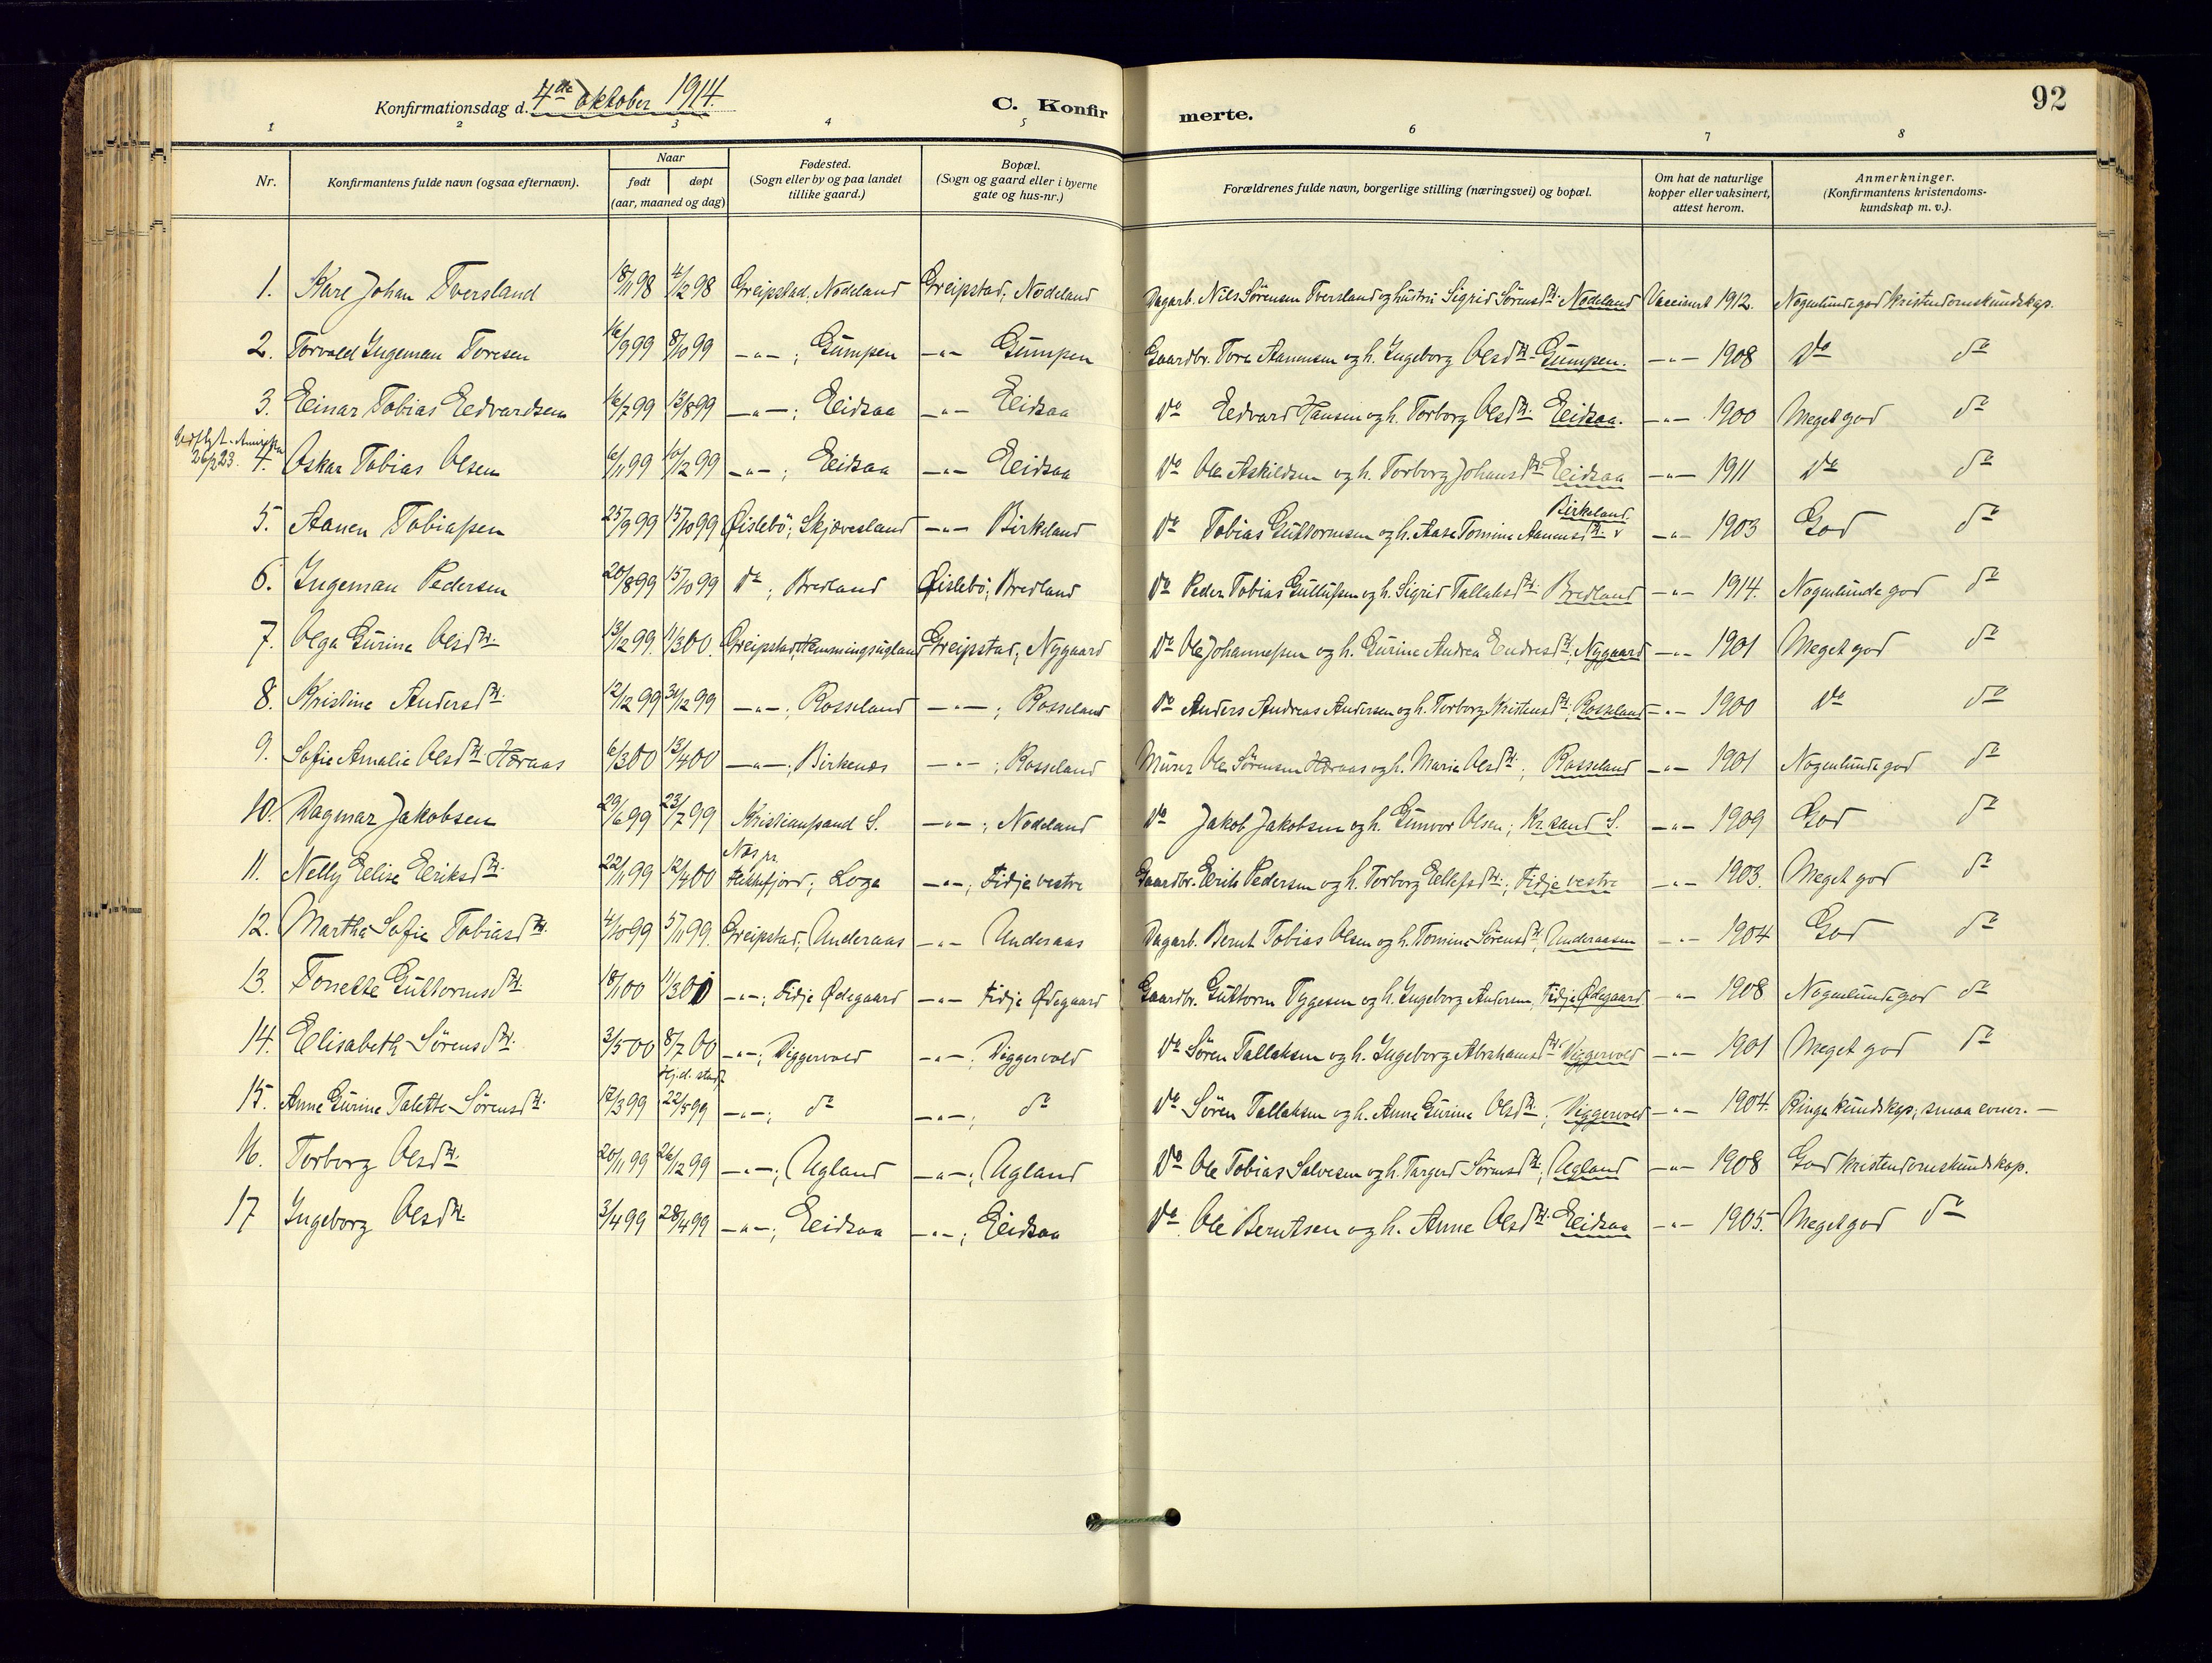 Konfirmationsdag d. 4de Oktober 1914.
C. Konfirmerte.
92
1 2 3 4 5 6 7 8
Nr.
Konfirmantens fulde navn (ogsaa efternavn).
Naar
født døpt
(aar, maaned og dag)
Fødested.
(Sogn eller by og paa landet
tillike gaard.)
Bopæl.
(Sogn og gaard eller i byerne
gate og hus-nr.)
Forældrenes fulde navn, borgerlige stilling (næringsvei) og bopæl.
Om hat de naturlige
kopper eller vaksinert,
attest herom.
Anmerkninger.
(Konfirmantens kristendoms-
kundskap m. v.).
1. Karl Johan Tversland 18/11 98 4/12 98 Greipstad, Nodeland Greipstad, Nodeland Dagarb. Nils Sørensen Tversland og hustru Sigrid Sørensdtr. Nodeland Vaccinert 1912. Nogenlunde god kristendomskundskap.
2. Torvald Ingeman Toresen 16/9 99 8/10 99 —"—; Gumpen —"— Gumpen Gaardbr. Tore Aanensen og h. Ingeborg Olsdtr. Gumpen. —"— 1908 Do do
3. Einar Tobias Edvardsen 16/7 99 13/8 99 —"—; Eidsaa —"— Eidsaa Do Edvard Hansen og h. Torborg Olsdtr. Eidsaa. —"— 1900 Meget god do
26/2 23. 4. Oskar Tobias Olsen 6/11 99 10/12 99 —"—; Eidsaa —"— Eidsaa Do Ole Askildsen og h. Torborg Johansdtr. Eidsaa —"— 1911 Do do
5. Aanen Tobiassen 25/9 99 15/10 99 Øislebö; Skjævesland —"— Birkeland Do Tobias Guttormsen og h. Aase Tomine Aanensdtr. Birkeland. —"— 1903 God do
6. Ingeman Pedersen 20/8 99 15/10 99 do; Bredland Øislebö; Bredland Do Peder Tobias Gullufsen og h. Sigrid Tallaksdtr. Bredland —"— 1914. Nogenlunde god do
7. Olga Gurine Olsdtr. 13/12 99. 11/3 00. Greipstad, Hemmingsugland Greipstad; Nygaard Do Ole Johannessen og h. Gurine Andrea Endresdtr., Nygaard —"— 1901 Meget god do
8. Kristine Andersdtr. 12/12 99 31/12 99 —"—; Rosseland —"—; Rosseland Do Anders Andreas Andersen og h. Torborg Kristensdtr., Rosseland —"— 1900 Do do
9. Sofie Amalie Olsdtr. Høraas 6/3 00 13/4 00 —"—; Birkenes —"—; Rosseland Murer Ole Sørensen Høraas og h. Maria Olsdtr., Rosseland —"— 1901 Nogenlunde god do
10. Dagmar Jakobsen 29/6 99 23/7 99 Kristianssand S. —"—; Nodeland Do Jakob Jakobsen og h. Gunvor Olsen; Kr.sand S. —"— 1909 God do
11. Nelly Elise Eriksdtr. 22/11 99 12/4 00 Næs pr. Flekkefjord; Loga —"—; Fidje vestre Gaardbr. Erik Pedersen og h. Torborg Ellefsdtr.; Fidje vestre —"— 1903. Meget god do
12. Martha Sofie Tobiasdtr. 4/10 99 5/11 99. Greipstad, Underaas —"— Underaas Dagarb. Bernt Tobias Olsen og h. Tomine Sørensdtr., Underaasen —"— 1904 God do
13. Tonette Guttormsdtr. 18/1 00 11/3 00 —"—; Fidje Ødegaard —"— Fidje Ødegaard Gaardbr. Guttorm Tygesen og h. Ingeborg Andersen, Fidje Ødegaard —"— 1908 Nogenlunde god do
14. Elisabeth Sørensdtr. 3/5 00 8/7 00 —"—; Viggervold —"—; Viggervold Do Søren Tallaksen og h. Ingeborg Abrahamsdtr. Viggervold —"— 1901 Meget god do
15. Anne Gurine Talette Sørensdtr. 12/3 99 Hj.d. stadf. 22/5 99 —"—; do —"—; do Do Søren Tallaksen og h. Anne Gurine Olsdtr.; Viggervold —"— 1904. Ringe kundskap; smaa evner. —
16. Torborg Olsdtr. 20/11 99 26/12 99 —"—; Ugland —"—; Ugland Do Ole Tobias Salvesen og h. Targerd Sørensdtr., Ugland —"— 1908 God kristendomskundskap.
17 Ingeborg Olsdtr. 3/4 99 28/4 99 —"—; Eidsaa —"—; Eidsaa Do Ole Berntsen og h. Anne Olsdtr. Eidsaa —"— 1905. Meget god do